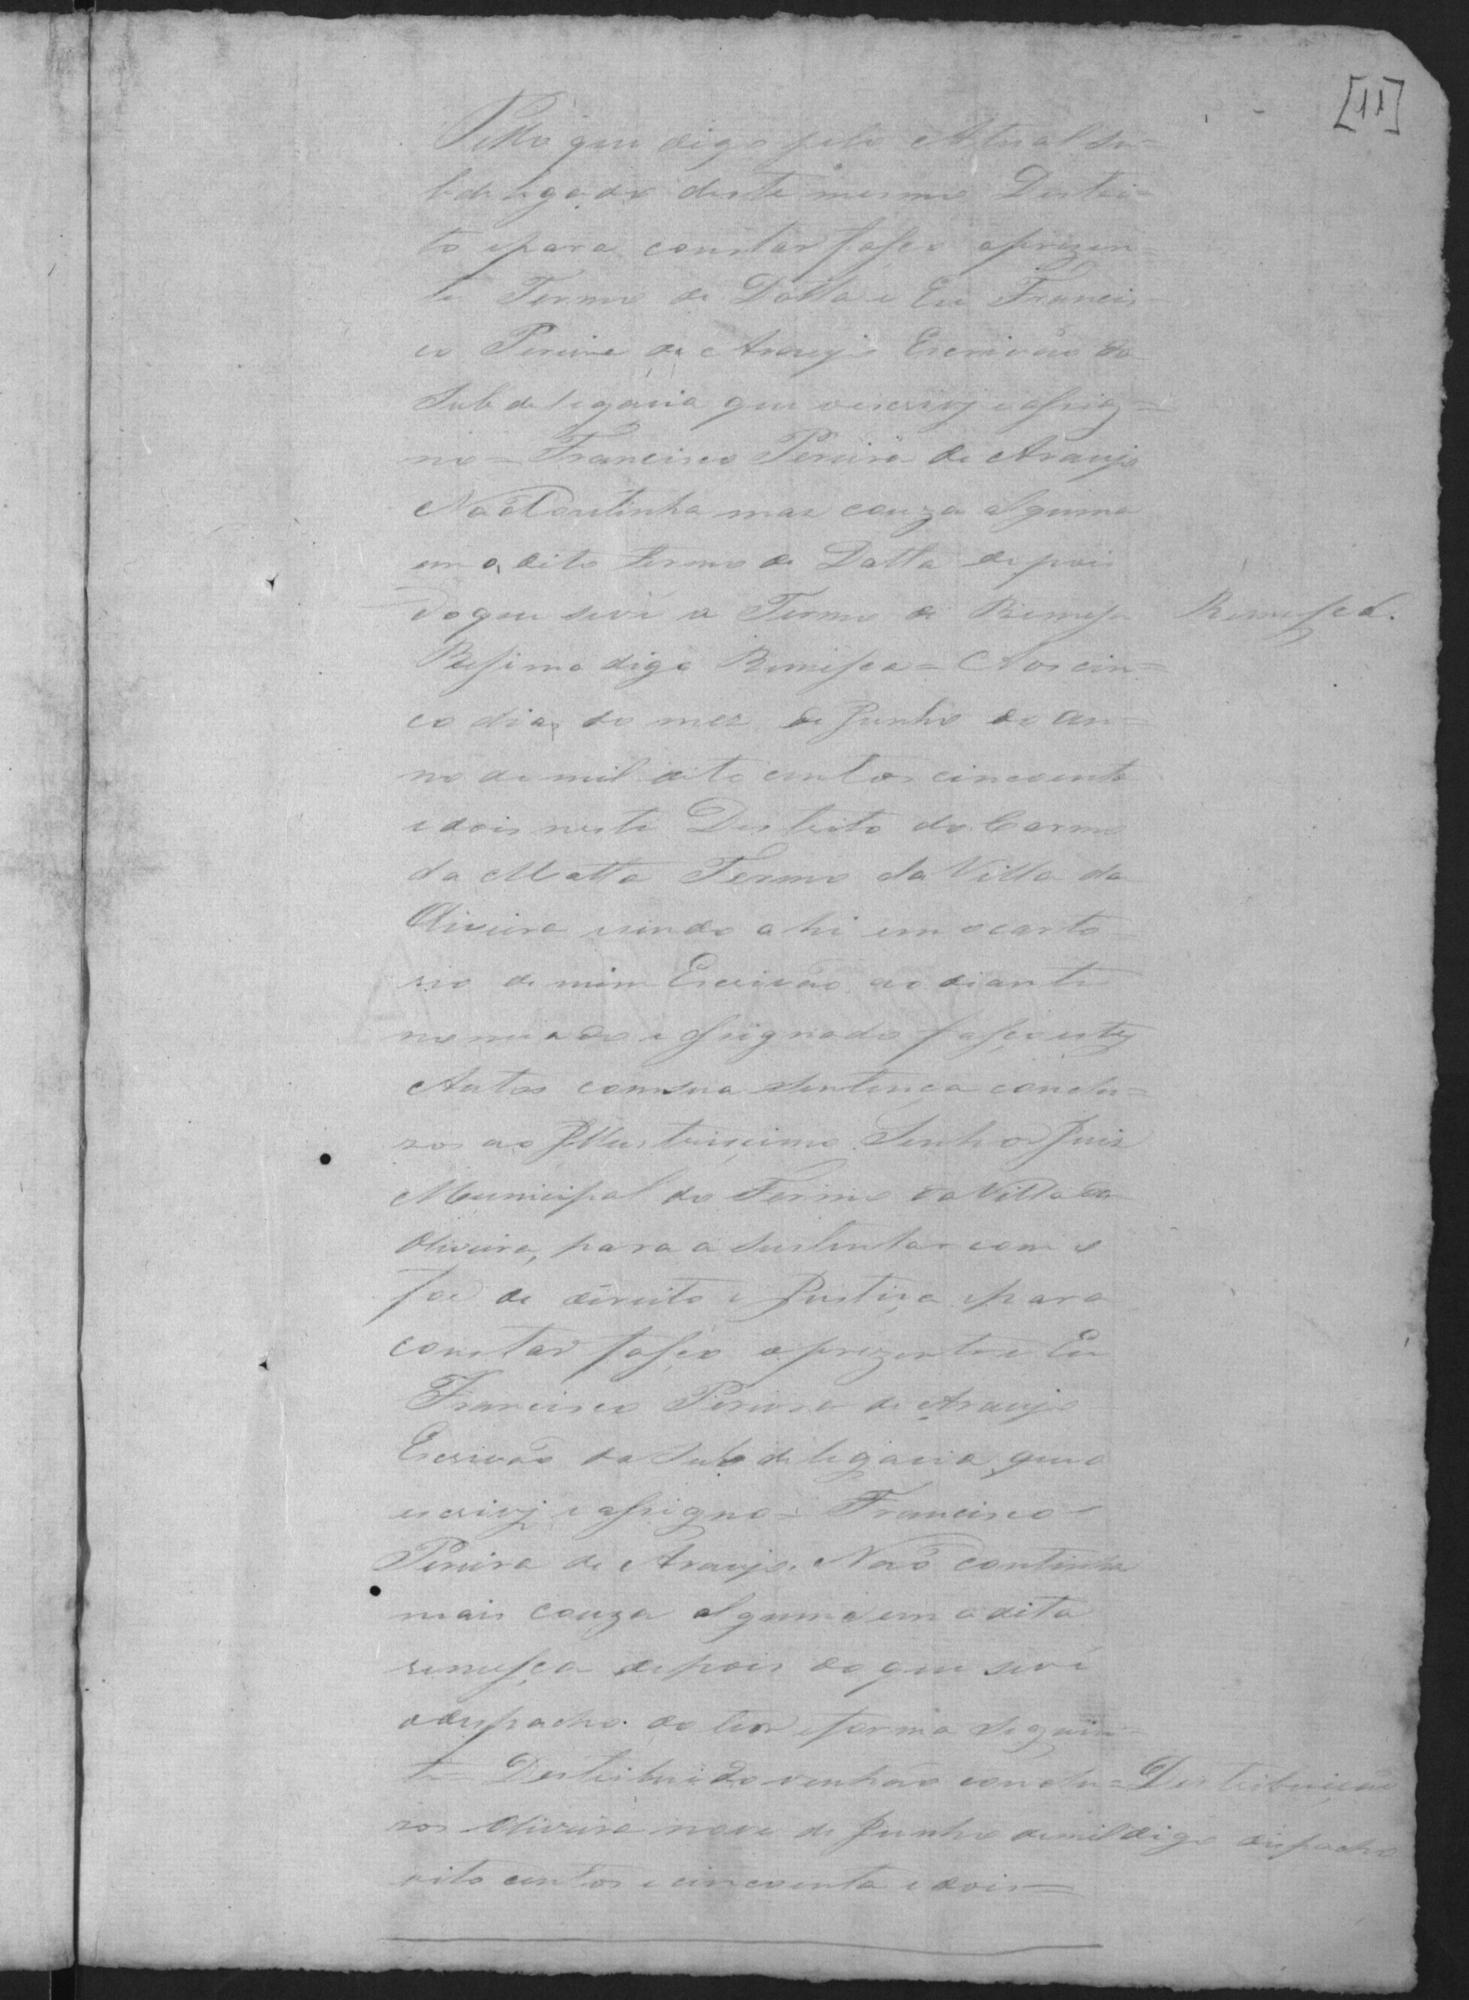 [11]
Pello que digo pelo Atual Su=
bdelegado deste mesmo Destri=
to epara constar fasço aprezen=
te Termo de Datta e Eu Francis=
co Pereira de Araujo Escrivão da
Subdelegacia que oescrivj eassig=
no = Francisco Pereira de Araujo
Não Contínha mas couza alguma
em o dito termo de Datta depois
doque sevê a Termo de Remessa
Remessa.
digo Remessa = Aos cin=
co dias do mez de Junho do an=
no de mil oito centos cincoenta
edois neste Destrito do Carmo
da Matta Termo da Villa da
Oliveira esendo ahi em ocarto=
rio de mim Escrivão ao diante
nomiado e assignado fasço estes
Autos comsua Sentença conclu=
zos ao Illustrissimo Senhor Juis
Municipal do Termo da Villa da
Oliveira, para a Sustentar como
for de direito e Justiça epara
constar fasço aprezente e Eu
Francisco Pereira de Araujo
Escrivão da Subdelegacia que a
escrivj eassigno = Francisco
Pereira de Araujo. Não contínha
mais couza alguma em adita
remessa depois do que sevê
odespacho do teor eforma Seguin=
te = Destribuido venhão conclu=
Destribuição
zos Oliveira nove de Junho demil digo
despacho
oito centos e cincoenta edois =